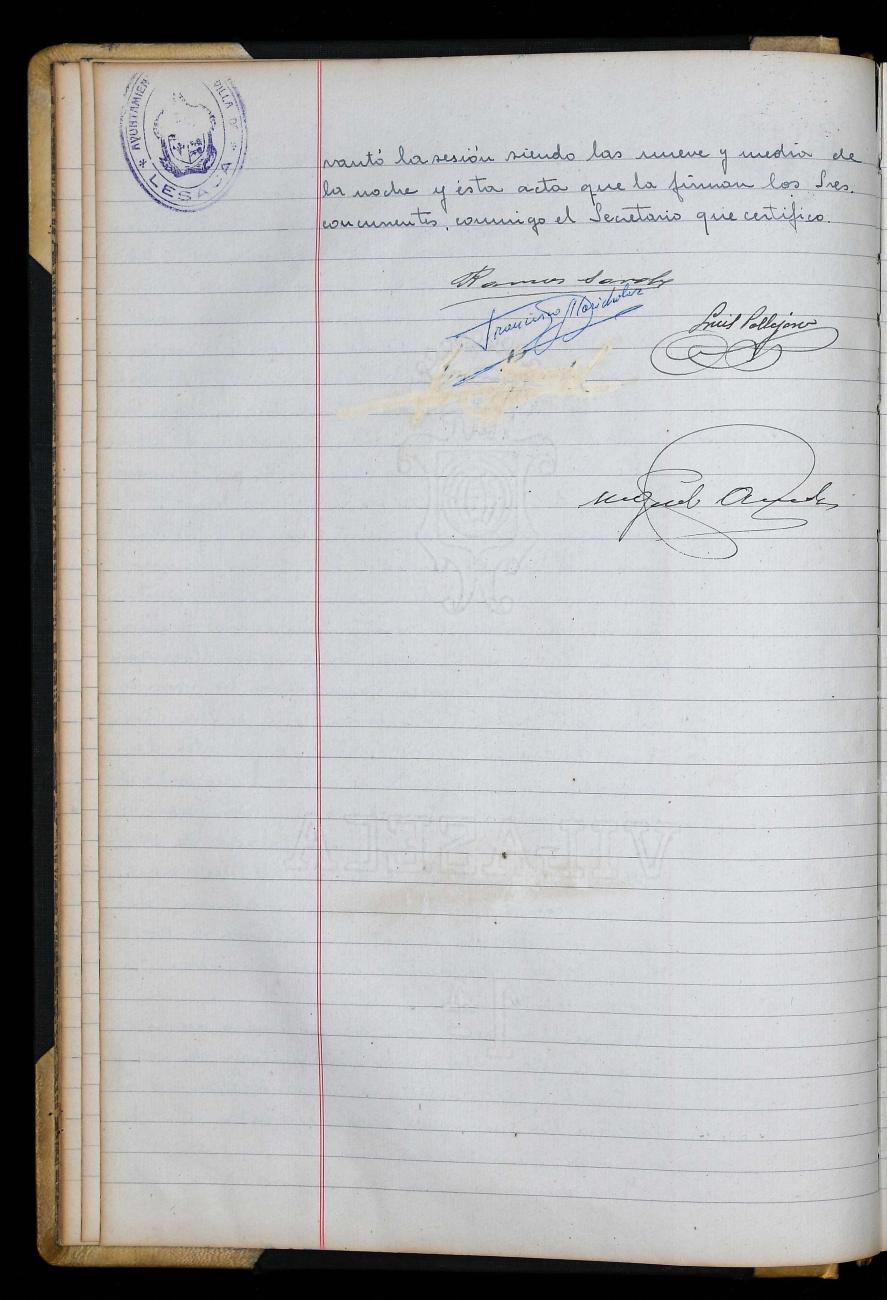 AYUNTAMIEN VILLA D
* LESACA *
vantó la sesión siendo las nueve y media de
la noche y ésta acta que la firman los Sres.
concurrentes, conmigo el Secretario que certifico.
Ramon
Francisco
Luis
Miguel